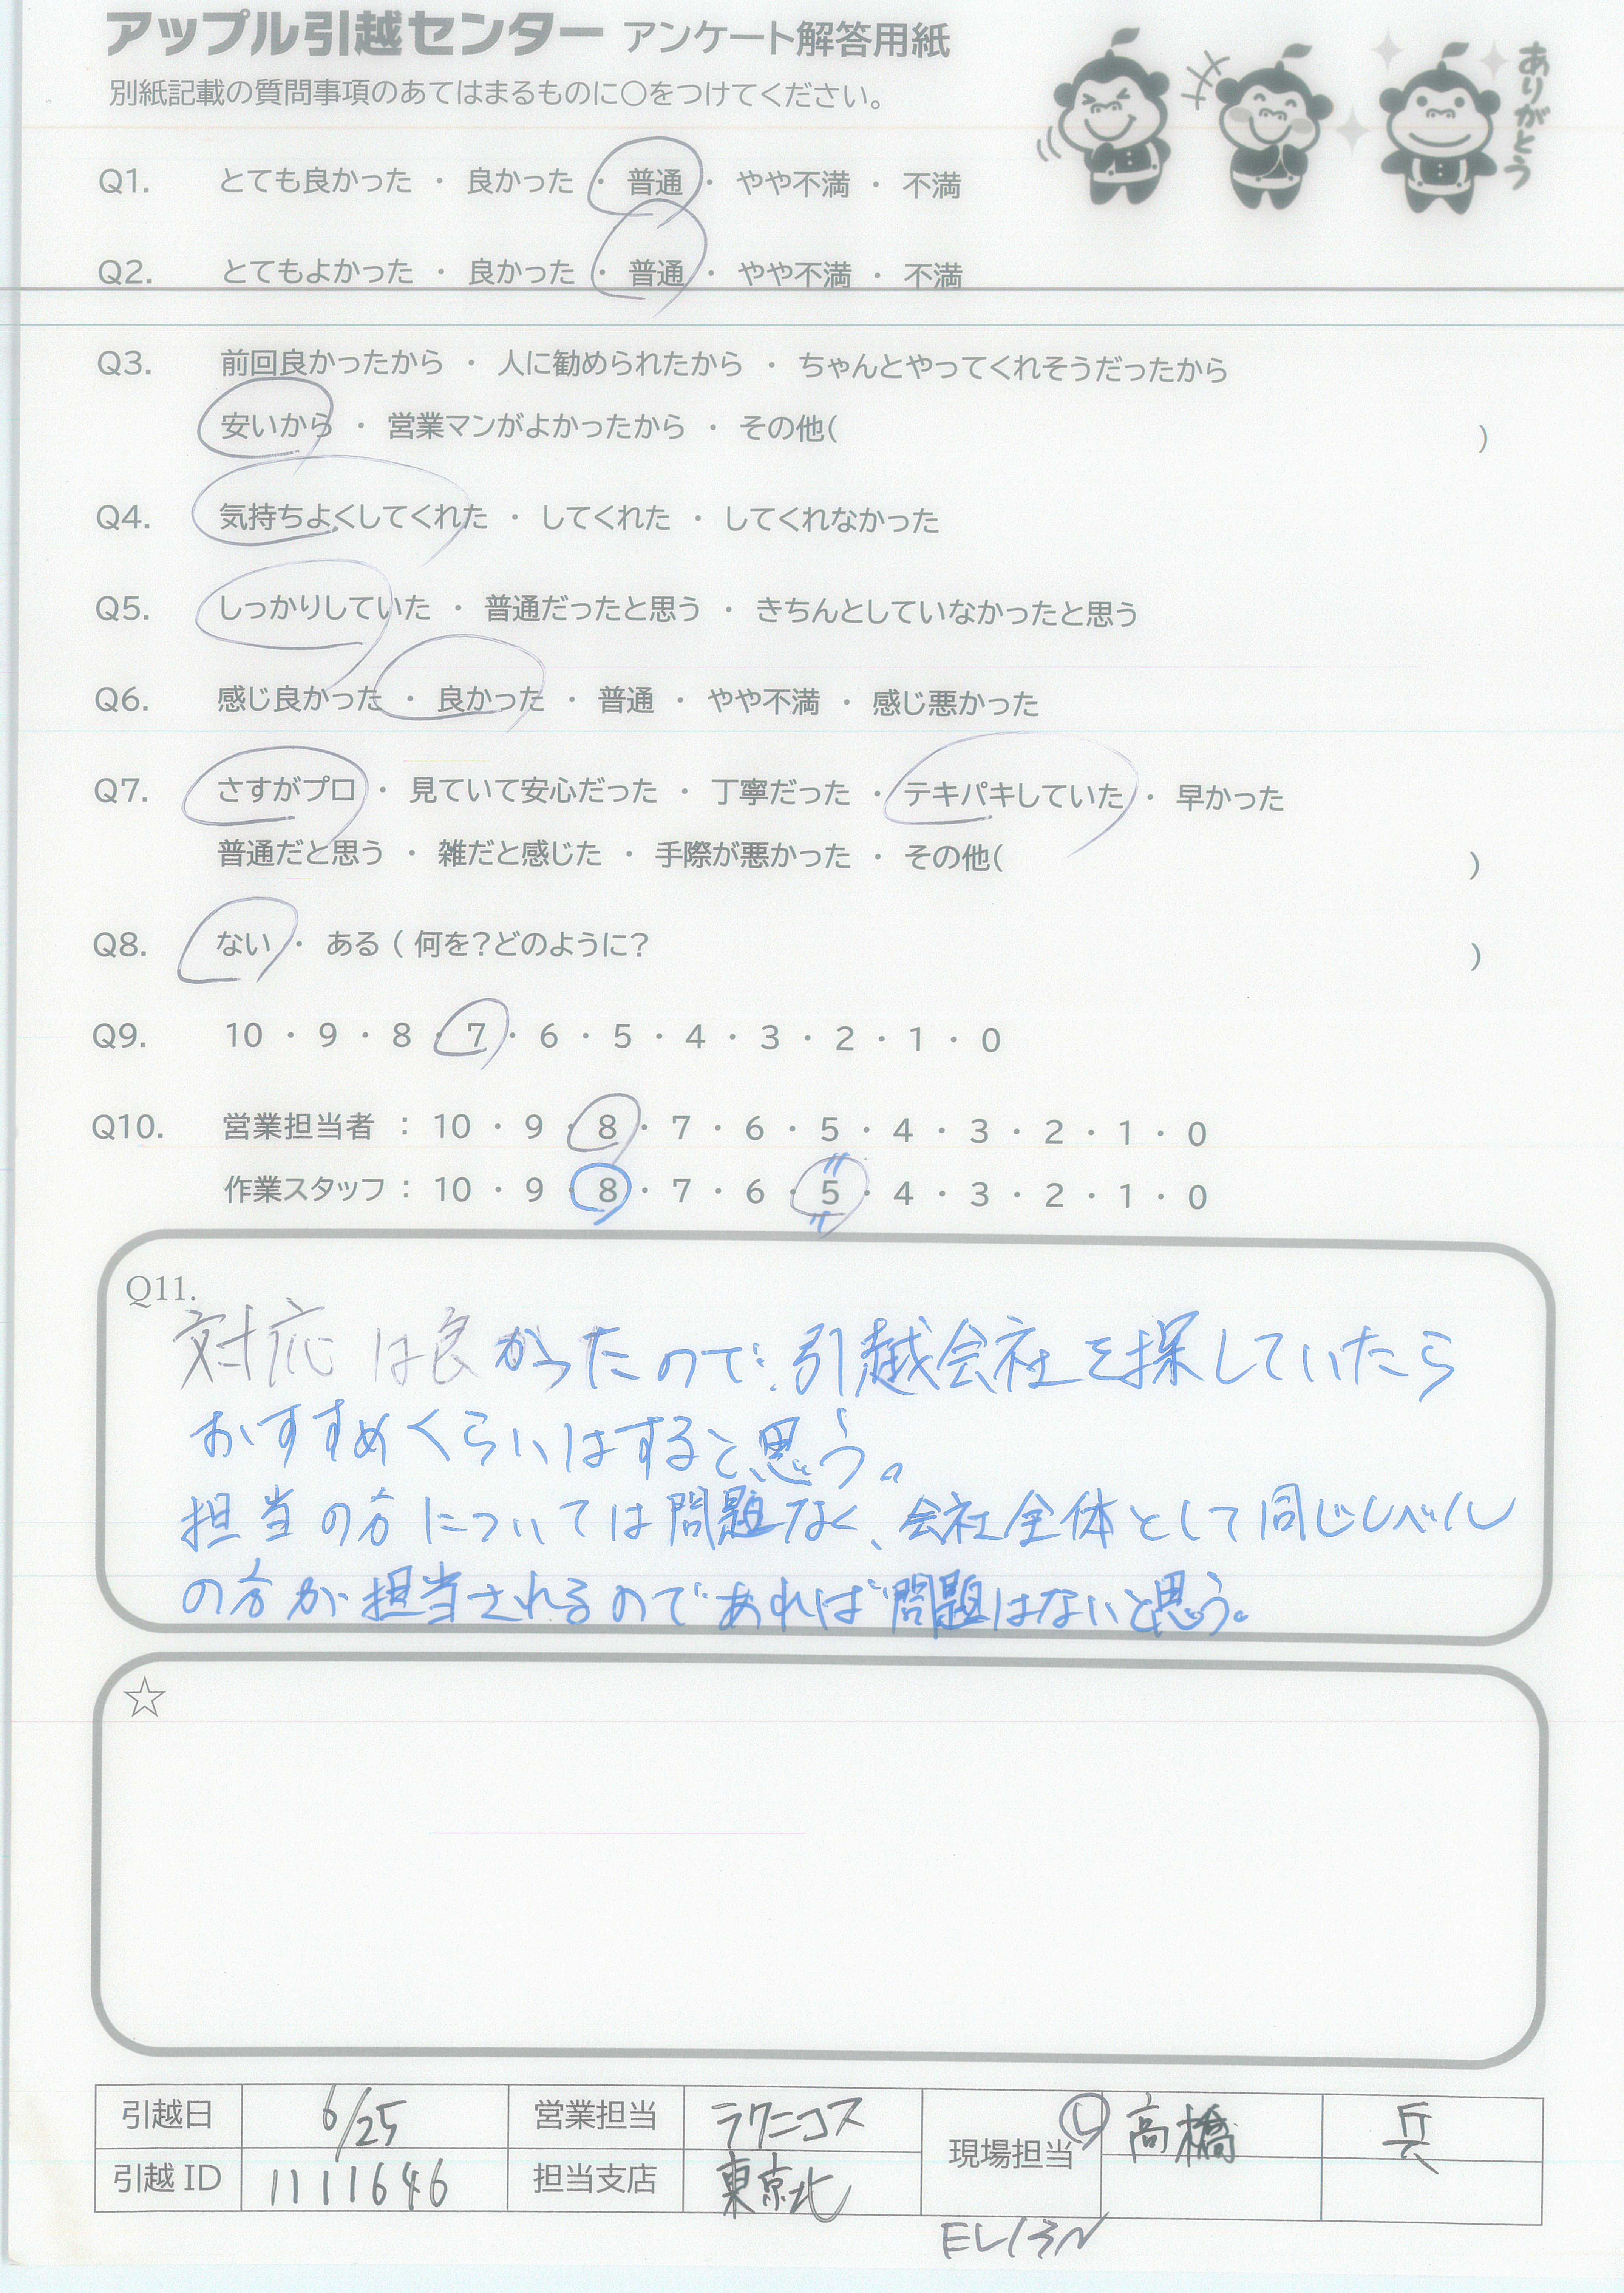 アップル引越センター アンケート解答用紙
別紙記載の質問事項のあてはまるものに○をつけてください。
ありがとう
Q1. とても良かった ・ 良かった ・ 普通 ・ やや不満 ・ 不満
Q2. とてもよかった ・ 良かった ・ 普通 ・ やや不満 ・ 不満
Q3. 前回良かったから ・ 人に勧められたから ・ ちゃんとやってくれそうだったから
安いから ・ 営業マンがよかったから ・ その他( )
Q4. 気持ちよくしてくれた ・ してくれた ・ してくれなかった
Q5. しっかりしていた ・ 普通だったと思う ・ きちんとしていなかったと思う
Q6. 感じ良かった ・ 良かった ・ 普通 ・ やや不満 ・ 感じ悪かった
Q7. さすがプロ ・ 見ていて安心だった ・ 丁寧だった ・ テキパキしていた ・ 早かった
普通だと思う ・ 雑だと感じた ・ 手際が悪かった ・ その他( )
Q8. ない ・ ある ( 何を?どのように? )
Q9. 10 ・ 9 ・ 8 ・ 7 ・ 6 ・ 5 ・ 4 ・ 3 ・ 2 ・ 1 ・ 0
Q10. 営業担当者 : 10 ・ 9 ・ 8 ・ 7 ・ 6 ・ 5 ・ 4 ・ 3 ・ 2 ・ 1 ・ 0
作業スタッフ : 10 ・ 9 ・ 8 ・ 7 ・ 6 ・ 5 ・ 4 ・ 3 ・ 2 ・ 1 ・ 0
Q11.
対応は良かったので、引越会社を探していたら
おすすめくらいはすると思う。
担当の方については問題なく、会社全体として同じレベル
の方が担当されるのであれば問題はないと思う。
☆
引越日 6/25 営業担当 ラクニコス 現場担当 Ⓛ 高橋 兵
引越ID 1111646 担当支店 東京北